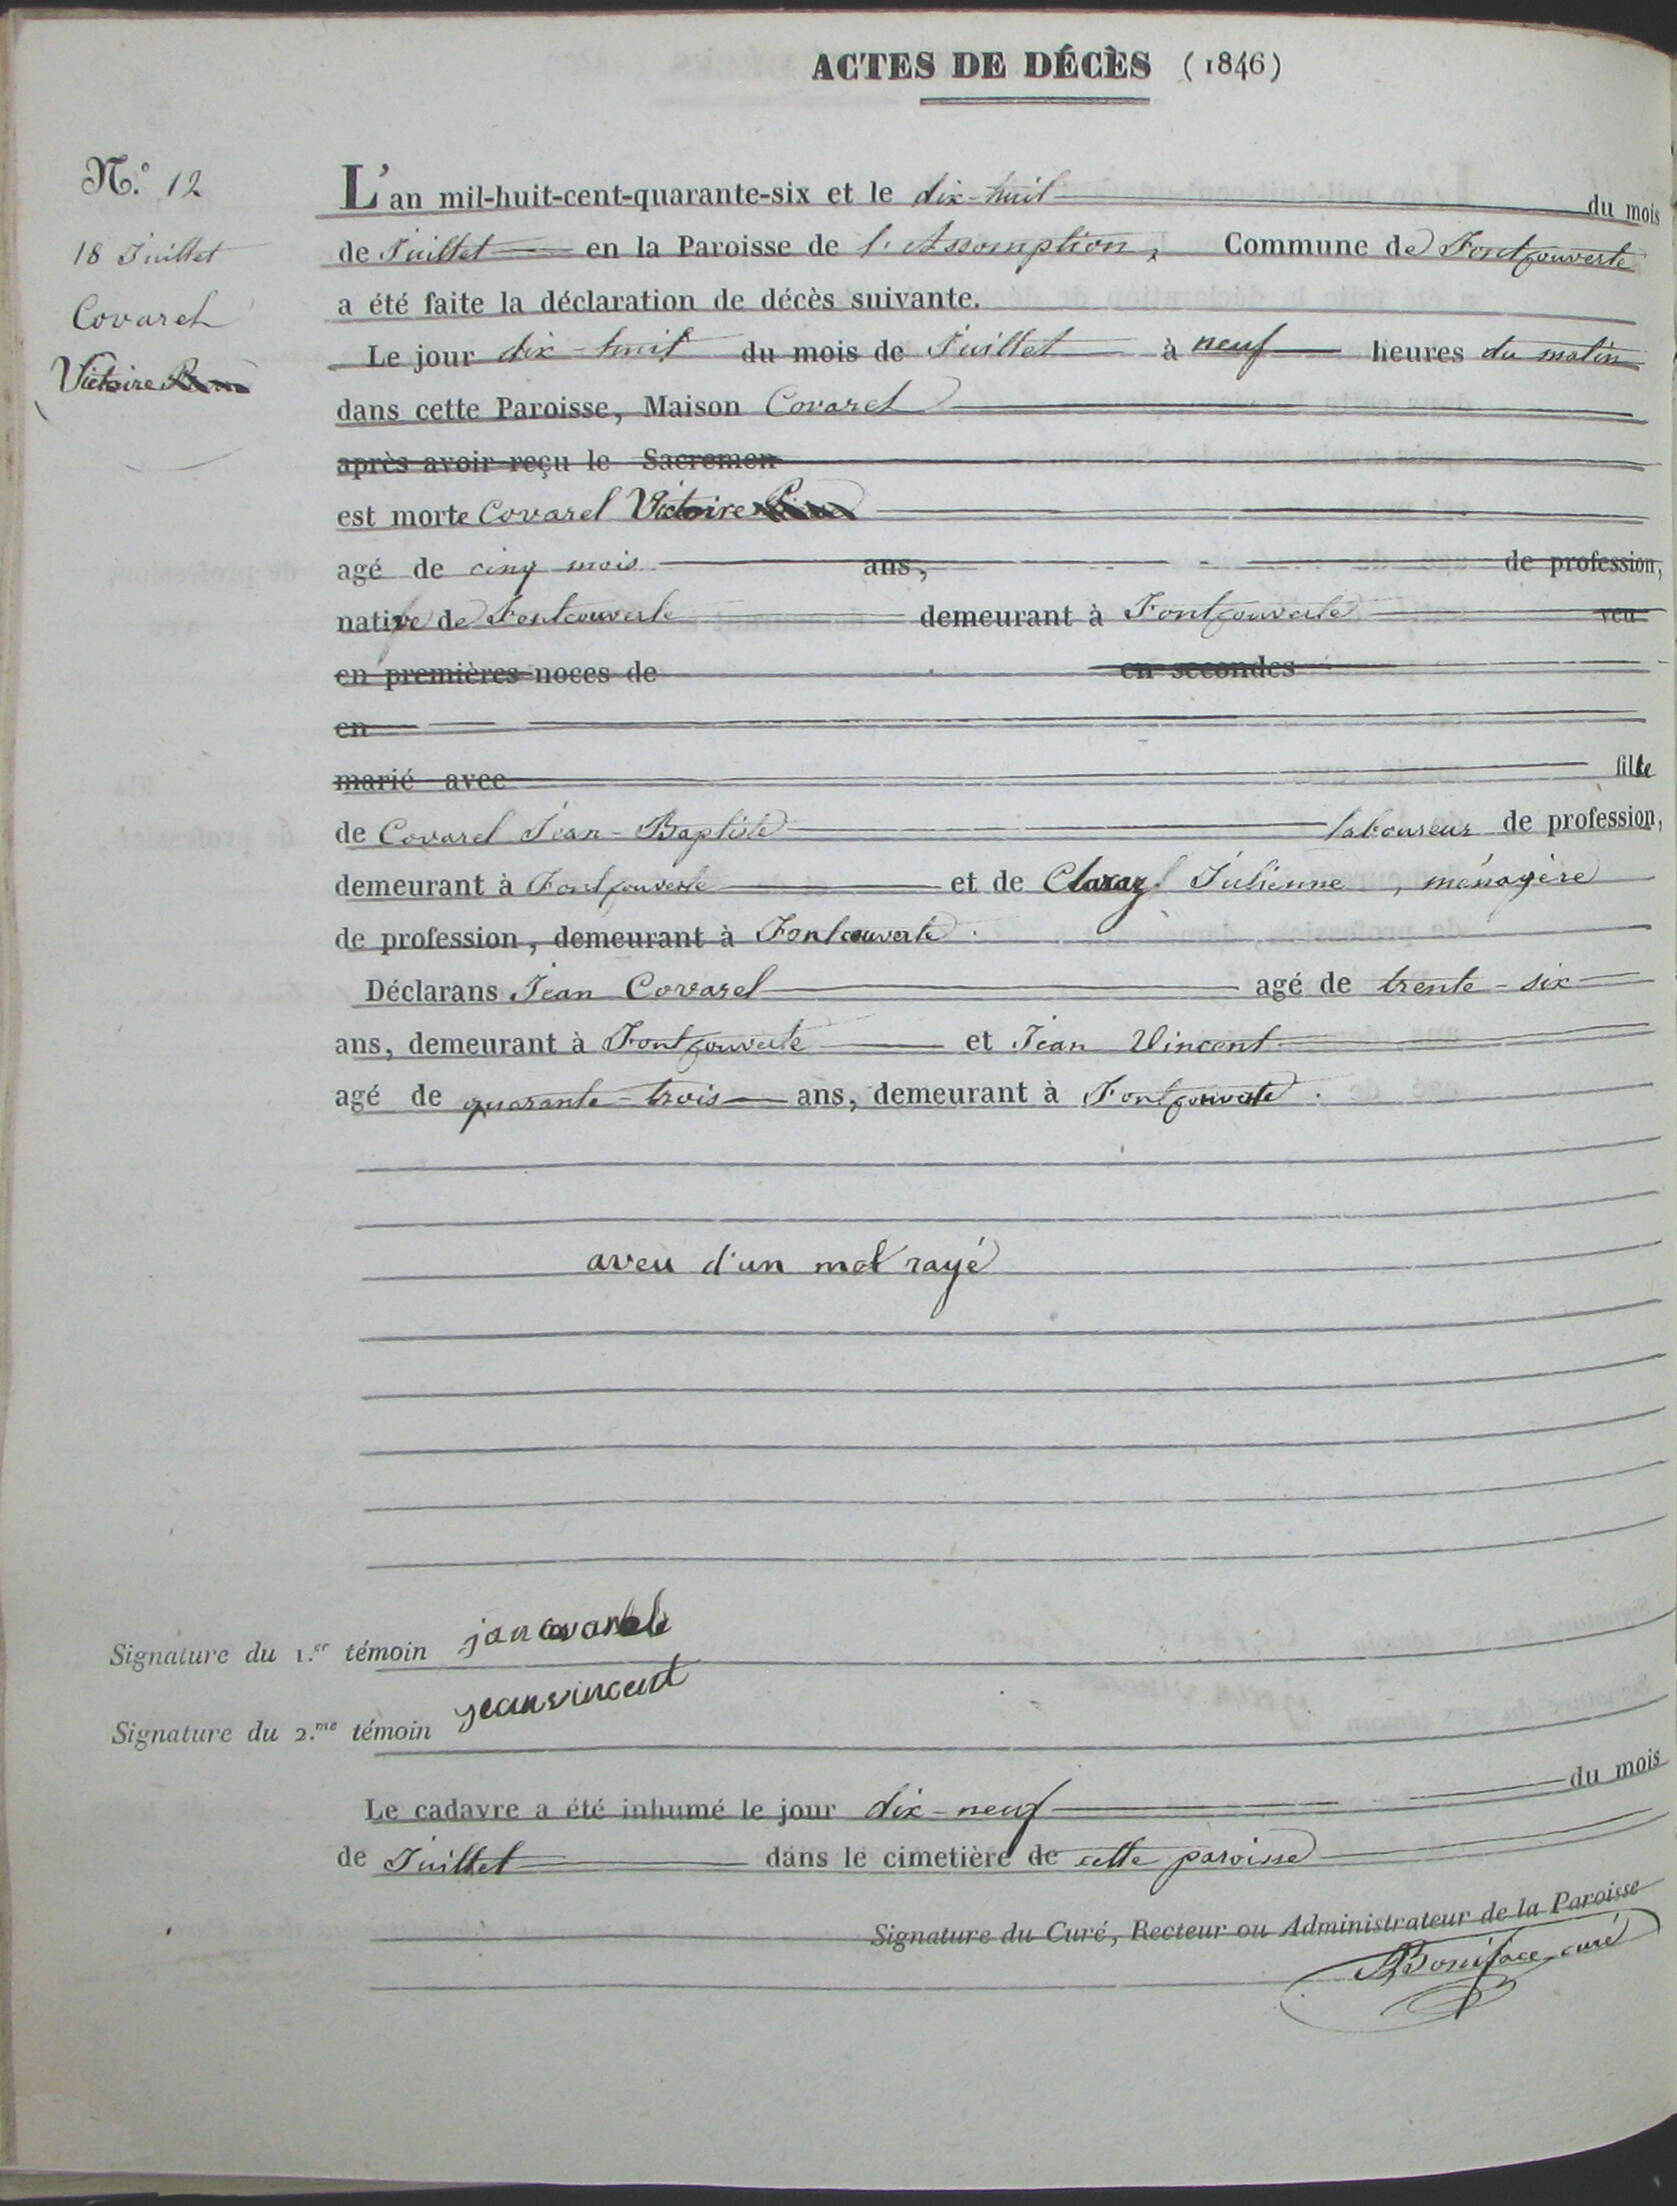 ACTES DE DÉCÈS (1846)
N.° 12
18 Juillet
Covarel
Victoire
L'an mil-huit-cent-quarante-six et le dix-huit du mois
de Juillet en la Paroisse de l'Assomption, Commune de Fontcouverte
a été faite la déclaration de décès suivante.
Le jour dix-huit du mois de Juillet à neuf heures du matin
dans cette Paroisse, Maison Covarel
après avoir reçu le Sacremen
est morte Covarel Victoire
agé de cinq mois ans, de profession,
native de Fontcouverte demeurant à Fontcouverte veu
en premières noces de en secondes
en
marié avec fille
de Covarel Jean-Baptiste laboureur de profession,
demeurant à Fontcouverte et de Claraz Julienne, ménagère
de profession, demeurant à Fontcouverte.
Déclarans Jean Covarel agé de trente-six
ans, demeurant à Fontcouverte et Jean Vincent
agé de quarante-trois ans, demeurant à Fontcouverte.
aveu d'un mot rayé
Signature du 1.er témoin
Signature du 2.me témoin jeanvincent
Le cadavre a été inhumé le jour dix-neuf du mois
de Juillet dans le cimetière de cette paroisse
Signature du Curé, Recteur ou Administrateur de la Paroisse
Boniface curé